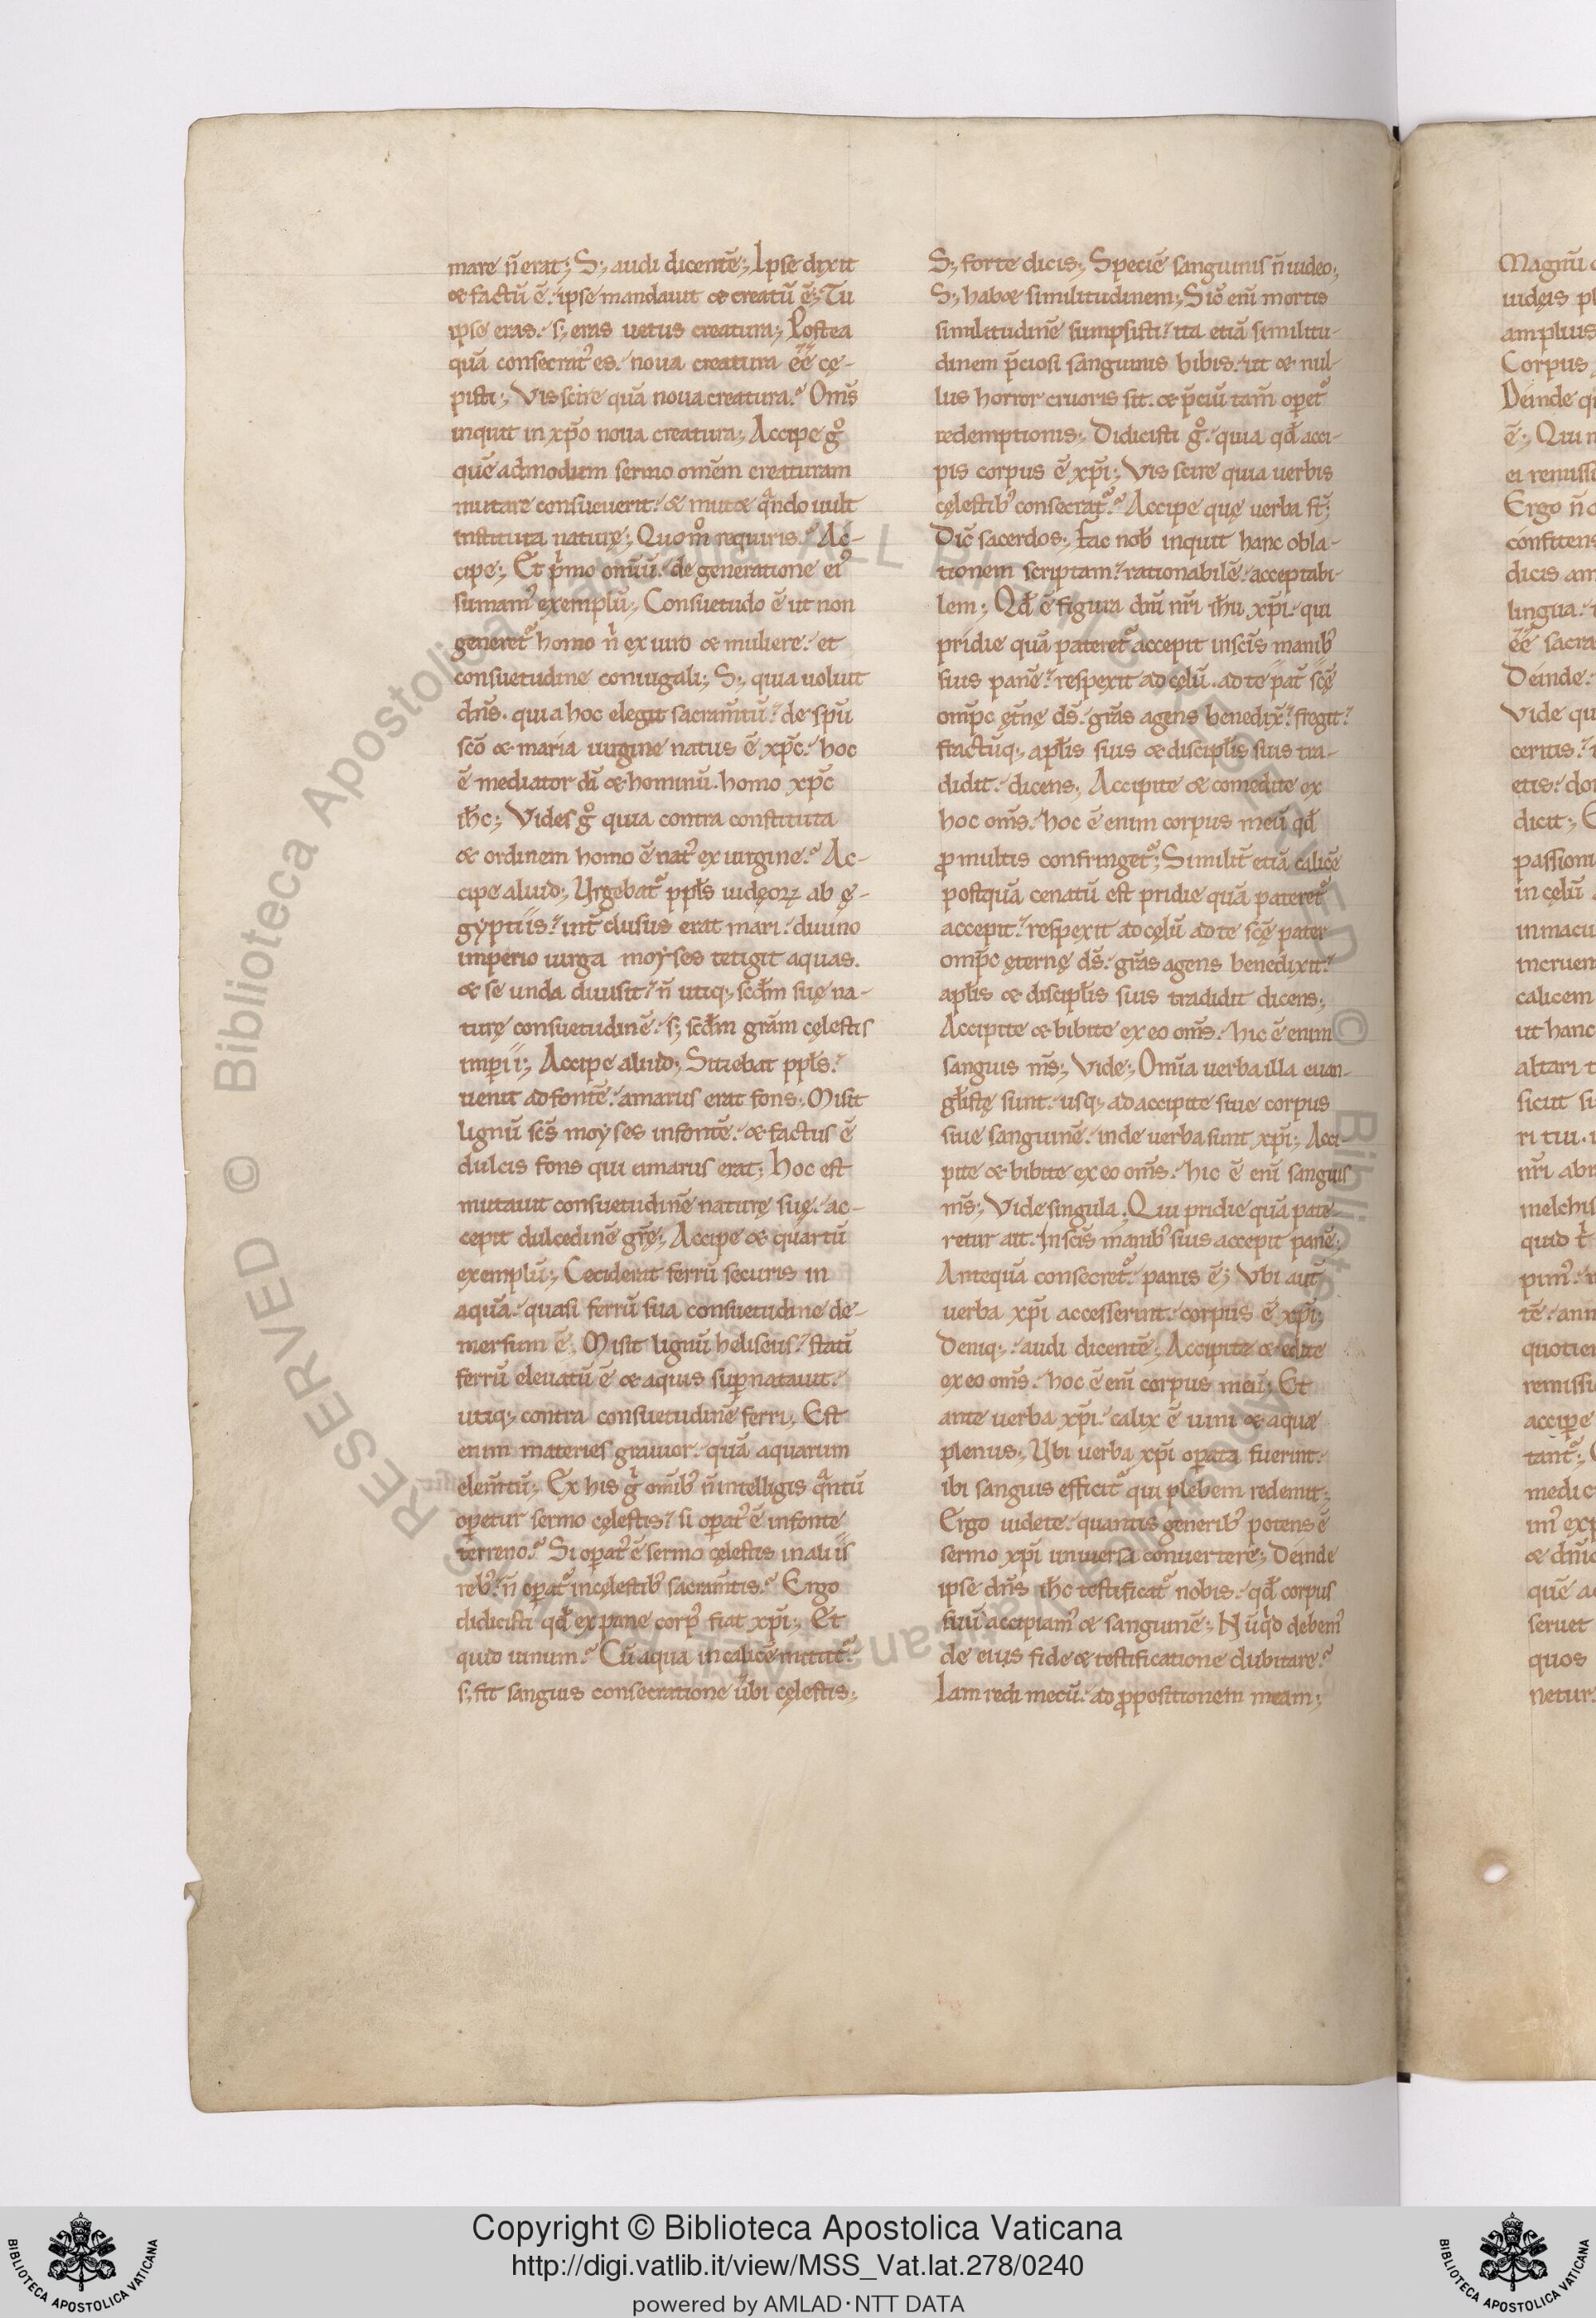 mare n̄ erat; S; audi dicentē; Ipse dixit
& factū ē. ipse mandauit & creatū ē; Tu
ipse eras. s; eras uetus creatura; Postea
quā consecrat᷒ es. noua creatura ēē cę-
pisti; Vis scire quā noua creatura? Om̄s
inquit in xp̄o noua creatura; Accipe gͦ
quē admodum sermo omēm creaturam
mutare consueuerit. & mut& qᷓndo uult
instituta naturę; Quom̊ requiris? Ac-
cipe; Et p̍mo omīū. de generatione ei᷒
sumam᷒ exemplū; Consuetudo ē ut non
generet᷑ homo n̍ ex uiro & muliere. et
consuetudine coniugali; S; quia uoluit
dn̄s. quia hoc elegit sacram̄tū. de sp̄u
sc̄o & maria uirgine natus ē xp̄c. hoc
ē mediator dī & hominū. homo xp̄c
ih̄c; Vides gͦ quia contra constituta
& ordinem homo ē nat᷒ ex uirgine? Ac-
cipe aliud; Urgebat᷑ ppl̄s iudęoꝝ ab ę-
gyptiis. int̄ clusus erat mari. diuino
imperio uirga moyses tetigit aquas.
& se unda diuisit. n̄ utiq; scd̄m suę na-
turę consuetudinē. s; scd̄m grām cęlestis
imp̱ii; Accipe aliud; Sitiebat ppl̄s.
uenit ad fontē. amarus erat fons; Misit
lignū sc̄s moyses in fontē. & factus ē
dulcis fons qui amarus erat; Hoc est
mutauit consuetudinē naturę suę. ac-
cepit dulcedinē grę̄; Accipe & quartū
exemplū; Ceciderat ferrū securis in
aquā. quasi ferrū sua consuetudine de-
mersum ē; Misit lignū heliseus. statī
ferrū eleuatū ē & aquis suꝑnatauit.
utiq; contra consuetudinē ferri; Est
enim materies grauior. quā aquarum
elem̄tū; Ex his g̍ omīb᷒ n̄ intelligis qᷓntū
oꝑetur sermo cęlestis. si oꝑat᷒ ē in fonte
terreno? Si oꝑat᷒ ē sermo cęlestis in aliis
reb᷒. n̄ oꝑat᷑ in cęlestib᷒ sacram̄tis? Ergo
didicisti qd̄ ex pane corp᷒ fiat xp̄i; Et
quid uinum? Cū aqua in calicē mittit᷑.
s; fit sanguis consecratione ubi cęlestis;
S; forte dicis; Speciē sanguinis n̄ uideo;
S; hab& similitudinem; Sic̄ enī mortis
similitudinē sumpsisti. ita etiā similitu-
dinem p̄ciosi sanguinis bibis. ut & nul-
lus horror cruoris sit. & p̄ciū tam̄ oꝑet᷑
redemptionis; Didicisti gͦ. quia qd̄ acci-
pis corpus ē xp̄i; Vis scire quia uerbis
cęlestib᷒ consecrat᷑? Accipe quę uerba st̄;
Dic̄ sacerdos; Fac nob̄ inquit hanc obla-
tionem scriptam. rationabilē. acceptabi-
lem; Qd̄ ē figura dn̄i nr̄i ih̄u xp̄i. qui
pridie quā pateret᷑ accepit in sc̄is manib᷒
suis panē. respexit ad cęlū. ad te pat̄ sc̄ę
omp̄c ęt̄nę ds̄. gr̄as agens benedix̄. fregit.
fractūq; apl̄is suis & discipl̄is suis tra-
didit. dicens; Accipite & comedite ex
hoc om̄s. hoc ē enim corpus meū qd̄
ꝓ multis confringet᷑; Similit̄ etiā calicē
postquā cenatū est pridie quā pateret᷑
accepit. respexit ad cęlū ad te sc̄ę pater
omp̄c ęternę ds̄. gr̄as agens benedixit.
apl̄is & discipl̄is suis tradidit dicens;
Accipite & bibite ex eo om̄s. hic ē enim
sanguis m̄s; Vide; Omīa uerba illa euan-
gl̄istę sunt. usq; ad accipite siue corpus
siue sanguinē. inde uerba sunt xp̄i; Acci-
pite & bibite ex eo om̄s. hic ē enī sanguis
m̄s; Vide singula; Qui pridie quā pate-
retur ait. In sc̄is manib᷒ suis accepit panē;
Antequā consecret᷑. panis ē; Vbi aut̄
uerba xp̄i accesserint. corpus ē xp̄i;
Deniq; audi dicentē; Accipite & edite
ex eo om̄s. hoc ē enī corpus meū; Et
ante uerba xp̄i. calix ē uini & aquæ
plenus; Ubi uerba xp̄i oꝑata fuerint.
ibi sanguis efficit᷑ qui plebem redemit;
Ergo uidete. quantis generib᷒ potens ē
sermo xp̄i uniuersa conuertere; Deinde
ipse dn̄s ih̄c testificat᷑ nobis. qd̄ corpus
suū accipiam᷒ & sanguinē; Nūqͥd debem᷒
de eius fide & testificatione dubitare?
Iam redi mecū. ad ꝓpositionem meam;
Copyright © Biblioteca Apostolica Vaticana
http://digi.vatlib.it/view/MSS_Vat.lat.278/0240
powered by AMLAD·NTT DATA